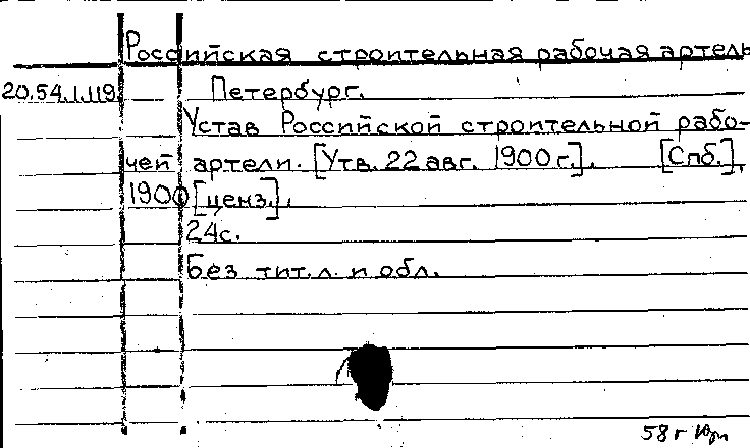 Российская строительная рабочая артель
20.54.1.119. Петербург.
Устав Российской строительной рабо-
чей артели. [Утв. 22 авг. 1900 г.]. [Спб.],
1900 [ценз.].
24с.
Без тит. л. и обл.
58 г